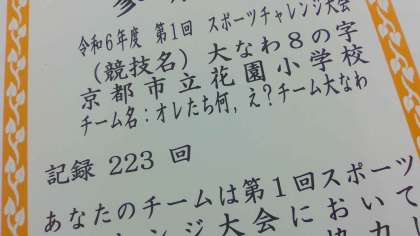 令和6年度 第1回 スポーツチャレンジ大会
(競技名) 大なわ8の字
京都市立花園小学校
チーム名:オレたち何,え?チーム大なわ
記録 223 回
あなたのチームは第1回スポーツ
ンジ大会において